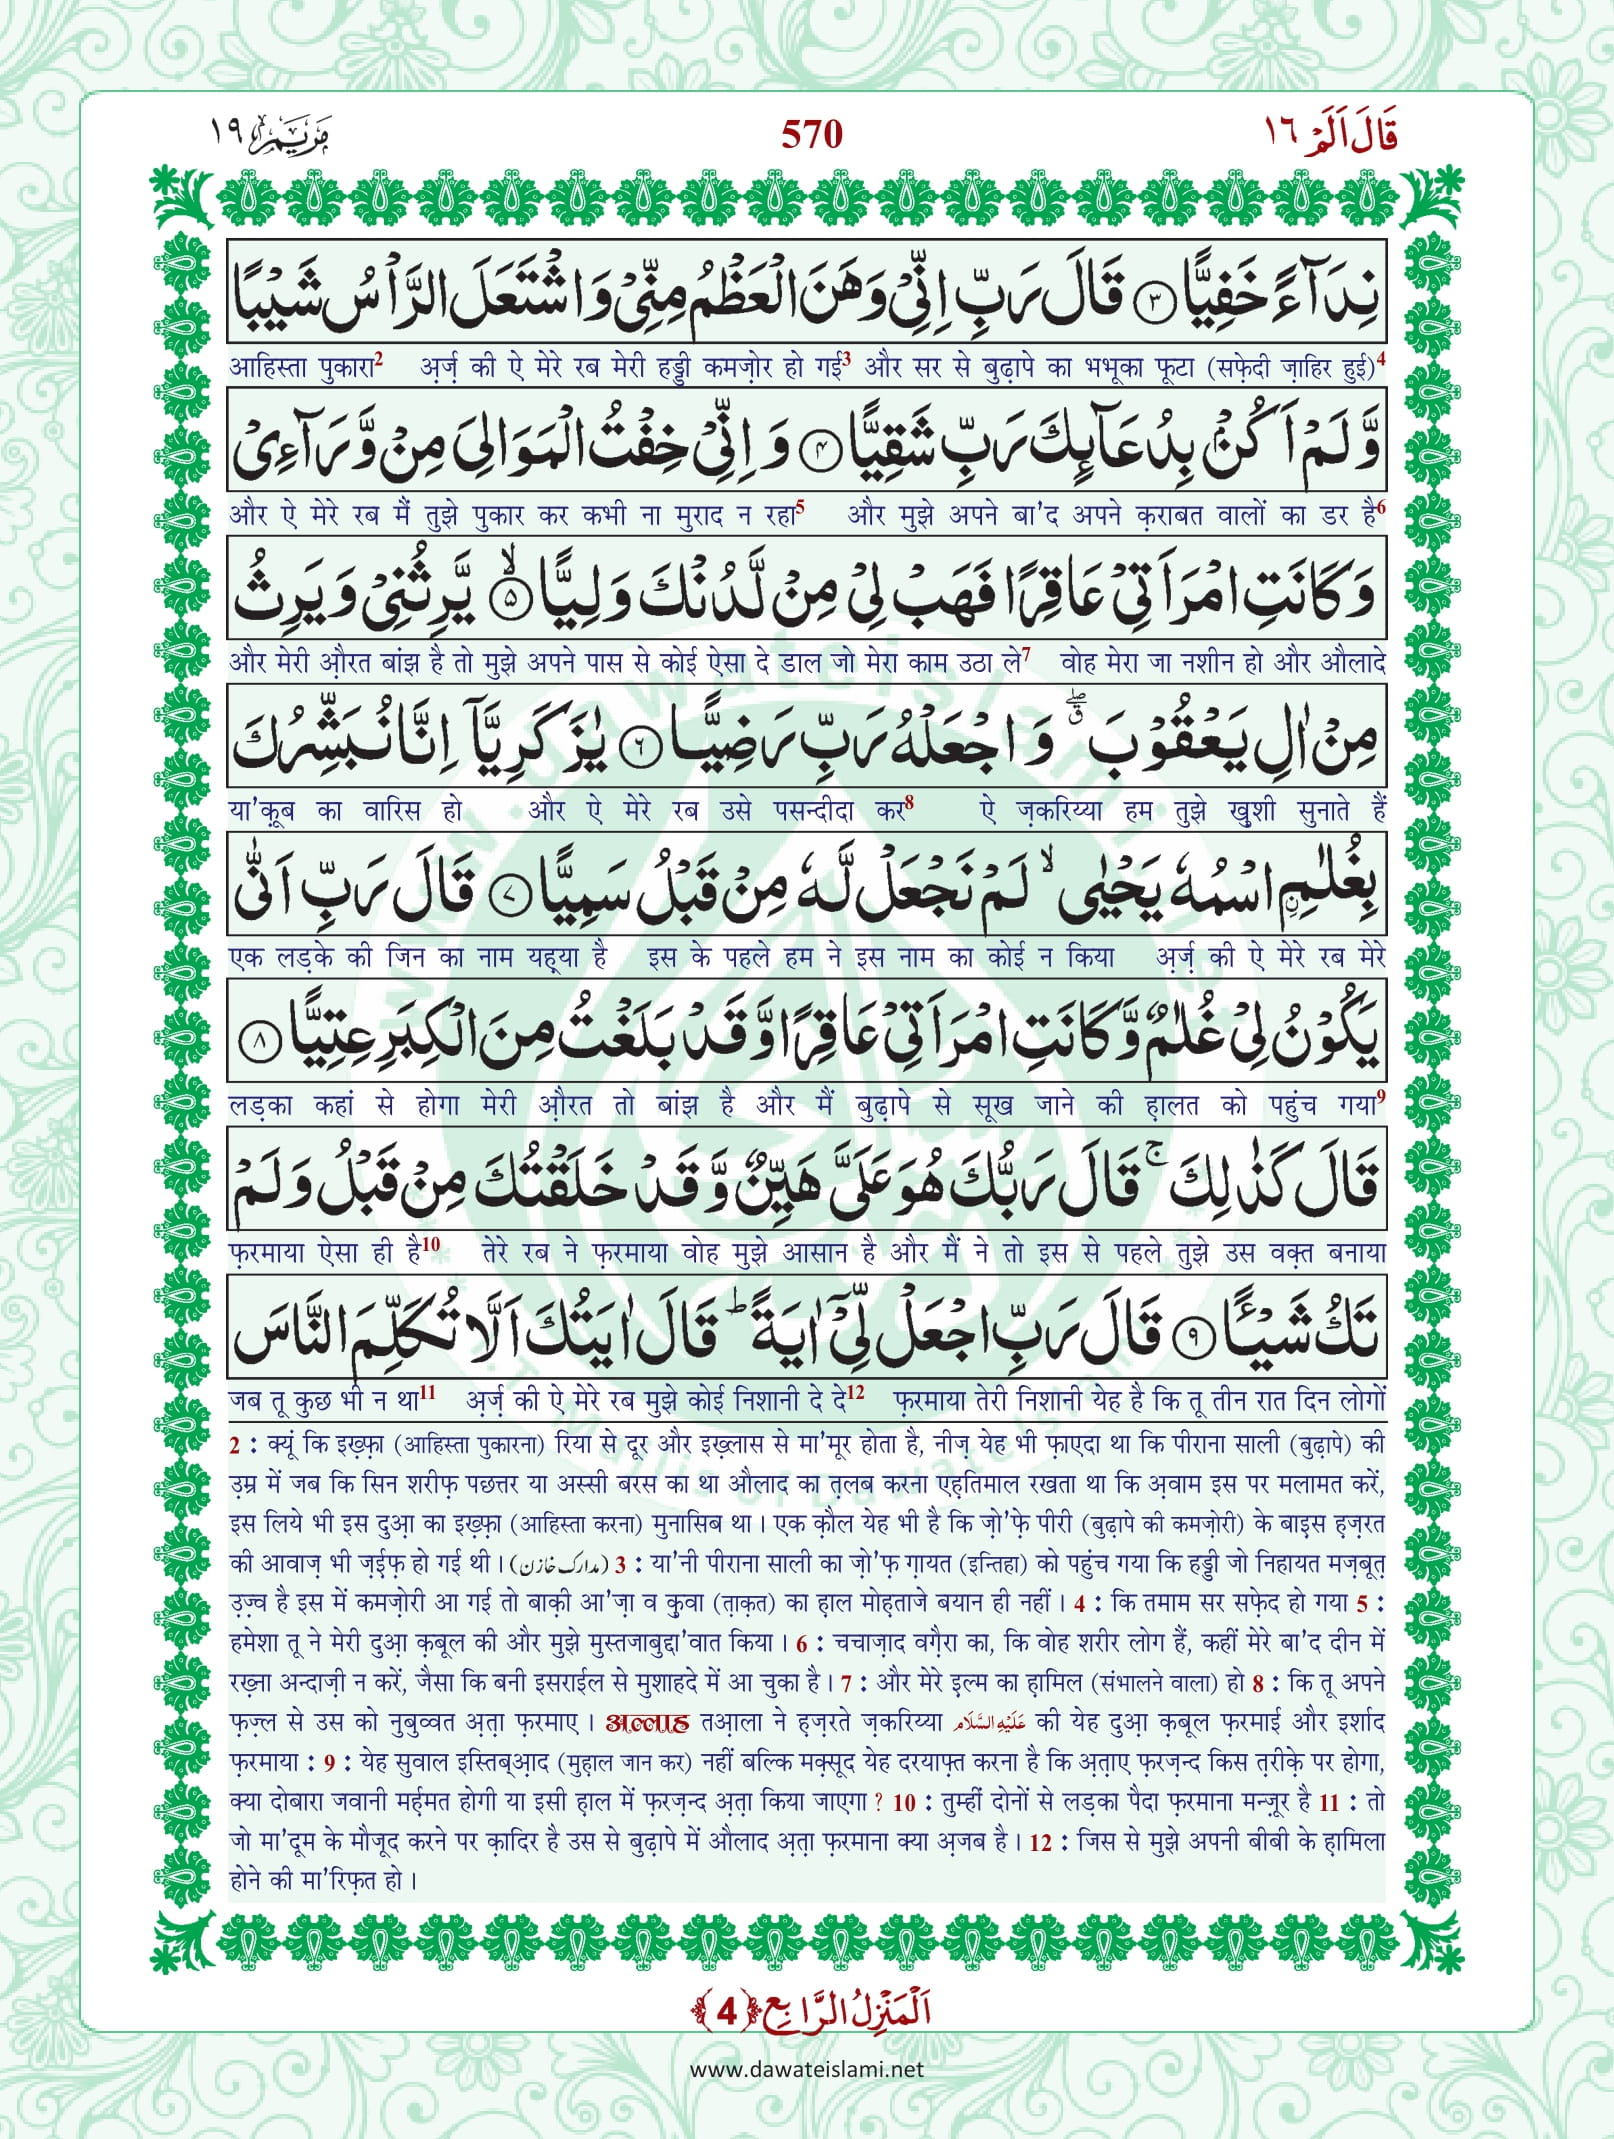 مَرْيَم ١٩
570
قَالَ اَلَمْ ١٦
نِدَآءً خَفِيًّا ﴿۳﴾ قَالَ رَبِّ اِنِّیْ وَهَنَ الْعَظْمُ مِنِّیْ وَ اشْتَعَلَ الرَّاْسُ شَیْبًا
आहिस्ता पुकारा2 अ़र्ज़ की ऐ मेरे रब मेरी हड्डी कमज़ोर हो गई3 और सर से बुढ़ापे का भभूका फूटा (सफ़ेदी ज़ाहिर हुई)4
وَّ لَمْ اَكُنْۢ بِدُعَآىِٕكَ رَبِّ شَقِیًّا ﴿۴﴾ وَ اِنِّیْ خِفْتُ الْمَوَالِیَ مِنْ وَّرَآءِیْ
और ऐ मेरे रब मैं तुझे पुकार कर कभी ना मुराद न रहा5 और मुझे अपने बा'द अपने क़राबत वालों का डर है6
وَ كَانَتِ امْرَاَتِیْ عَاقِرًا فَهَبْ لِیْ مِنْ لَّدُنْكَ وَلِیًّا ۙ﴿۵﴾ یَّرِثُنِیْ وَ یَرِثُ
और मेरी औ़रत बांझ है तो मुझे अपने पास से कोई ऐसा दे डाल जो मेरा काम उठा ले7 वोह मेरा जा नशीन हो और औलादे
مِنْ اٰلِ یَعْقُوْبَ ۖۗ وَ اجْعَلْهُ رَبِّ رَضِیًّا ﴿۶﴾ یٰزَكَرِیَّاۤ اِنَّا نُبَشِّرُكَ
या'क़ूब का वारिस हो और ऐ मेरे रब उसे पसन्दीदा कर8 ऐ ज़करिय्या हम तुझे खुशी सुनाते हैं
بِغُلٰمِ ِ۟اسْمُهٗ یَحْیٰى ۙ لَمْ نَجْعَلْ لَّهٗ مِنْ قَبْلُ سَمِیًّا ﴿۷﴾ قَالَ رَبِّ اَنّٰى
एक लड़के की जिन का नाम यह़्या है इस के पहले हम ने इस नाम का कोई न किया अ़र्ज़ की ऐ मेरे रब मेरे
یَكُوْنُ لِیْ غُلٰمٌ وَّ كَانَتِ امْرَاَتِیْ عَاقِرًا وَّ قَدْ بَلَغْتُ مِنَ الْكِبَرِ عِتِیًّا ﴿۸﴾
लड़का कहां से होगा मेरी औ़रत तो बांझ है और मैं बुढ़ापे से सूख जाने की ह़ालत को पहुंच गया9
قَالَ كَذٰلِكَ ۚ قَالَ رَبُّكَ هُوَ عَلَیَّ هَیِّنٌ وَّ قَدْ خَلَقْتُكَ مِنْ قَبْلُ وَ لَمْ
फ़रमाया ऐसा ही है10 तेरे रब ने फ़रमाया वोह मुझे आसान है और मैं ने तो इस से पहले तुझे उस वक़्त बनाया
تَكُ شَیْــٴًـا ﴿۹﴾ قَالَ رَبِّ اجْعَلْ لِّیْۤ اٰیَةً ؕ قَالَ اٰیَتُكَ اَلَّا تُكَلِّمَ النَّاسَ
जब तू कुछ भी न था11 अ़र्ज़ की ऐ मेरे रब मुझे कोई निशानी दे दे12 फ़रमाया तेरी निशानी येह है कि तू तीन रात दिन लोगों
2 : क्यूं कि इख़्फ़ा (आहिस्ता पुकारना) रिया से दूर और इख़्लास से मा'मूर होता है, नीज़ येह भी फ़ाएदा था कि पीराना साली (बुढ़ापे) की
उ़म्र में जब कि सिन शरीफ़ पछत्तर या अस्सी बरस का था औलाद का त़लब करना एह़तिमाल रखता था कि अ़वाम इस पर मलामत करें,
इस लिये भी इस दुआ़ का इख़्फ़ा (आहिस्ता करना) मुनासिब था। एक क़ौल येह भी है कि ज़ो'फ़े पीरी (बुढ़ापे की कमज़ोरी) के बाइस ह़ज़रत
की आवाज़ भी ज़ई़फ़ हो गई थी। (مدارک خازن) 3 : या'नी पीराना साली का ज़ो'फ़ ग़ायत (इन्तिहा) को पहुंच गया कि हड्डी जो निहायत मज़बूत़
उ़ज़्व है इस में कमज़ोरी आ गई तो बाक़ी आ'ज़ा व क़ुवा (त़ाक़त) का ह़ाल मोह़ताजे बयान ही नहीं। 4 : कि तमाम सर सफ़ेद हो गया 5 :
हमेशा तू ने मेरी दुआ़ क़बूल की और मुझे मुस्तजाबुद्दा'वात किया। 6 : चचाज़ाद वग़ैरा का, कि वोह शरीर लोग हैं, कहीं मेरे बा'द दीन में
रख़्ना अन्दाज़ी न करें, जैसा कि बनी इसराईल से मुशाहदे में आ चुका है। 7 : और मेरे इ़ल्म का ह़ामिल (संभालने वाला) हो 8 : कि तू अपने
फ़ज़्ल से उस को नुबुव्वत अ़त़ा फ़रमाए। अल्लाह तआ़ला ने ह़ज़रते ज़करिय्या عَلَيْهِ السَّلَام की येह दुआ़ क़बूल फ़रमाई और इर्शाद
फ़रमाया : 9 : येह सुवाल इस्तिब्आ़द (मुह़ाल जान कर) नहीं बल्कि मक़्सूद येह दरयाफ़्त करना है कि अ़त़ाए फ़रज़न्द किस त़रीक़े पर होगा,
क्या दोबारा जवानी मर्ह़मत होगी या इसी ह़ाल में फ़रज़न्द अ़त़ा किया जाएगा ? 10 : तुम्हीं दोनों से लड़का पैदा फ़रमाना मन्ज़ूर है 11 : तो
जो मा'दूम के मौजूद करने पर क़ादिर है उस से बुढ़ापे में औलाद अ़त़ा फ़रमाना क्या अ़जब है। 12 : जिस से मुझे अपनी बीबी के ह़ामिला
होने की मा'रिफ़त हो।
اَلْمَنْزِلُ الرَّابِع ﴿4﴾
www.dawateislami.net